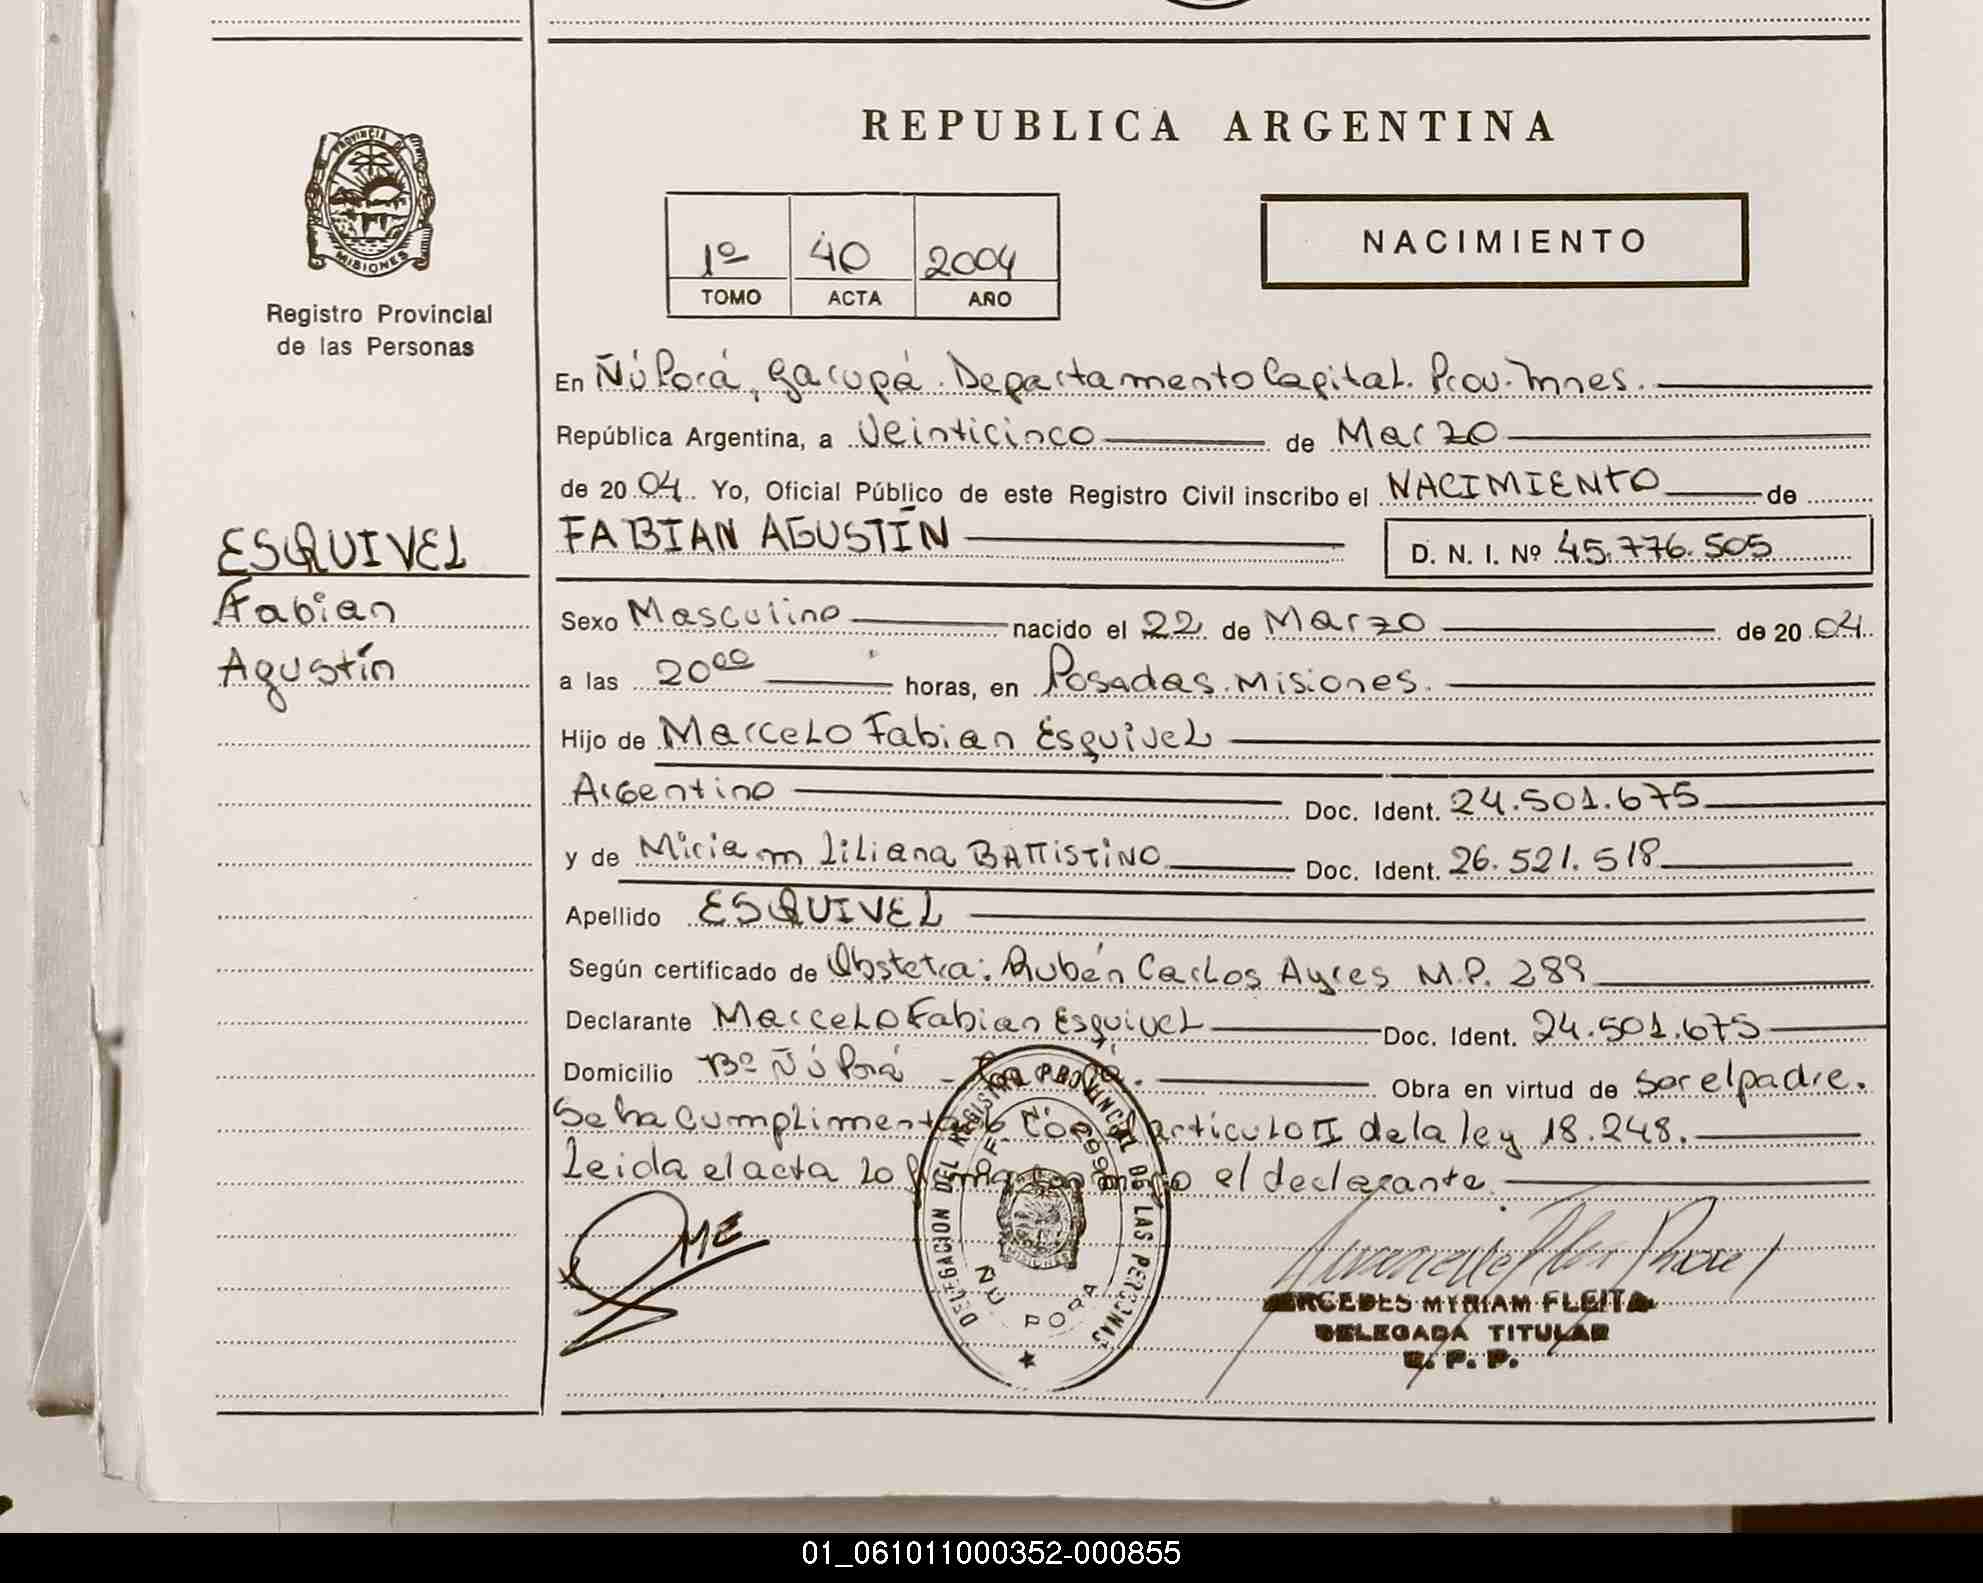 REPUBLICA ARGENTINA
PROVINCIA DE
MISIONES
Registro Provincial
de las Personas
1º 40 2004
TOMO ACTA AÑO
NACIMIENTO
En Ñú Porá, Garupá. Departamento Capital. Prov. Mnes.
República Argentina, a Veinticinco de Marzo
de 2004. Yo, Oficial Público de este Registro Civil inscribo el NACIMIENTO de
FABIAN AGUSTÍN D. N. I. Nº 45.776.505
ESQUIVEL
Fabian
Agustín
Sexo Masculino nacido el 22 de Marzo de 2004
a las 20 00 horas, en Posadas. Misiones.
Hijo de Marcelo Fabian Esquivel
Argentino Doc. Ident. 24.501.675
y de Miriam Liliana BATTISTINO Doc. Ident. 26.521.518
Apellido ESQUIVEL
Según certificado de Obstetra: Rubén Carlos Ayres M.P. 289
Declarante Marcelo Fabian Esquivel Doc. Ident. 24.501.675
Domicilio Bº Ñú Porá - Obra en virtud de ser el padre.
Se ha cumplimentado con el artículo II de la ley 18.248.
Leida el acta la firma conmigo el declarante.
DELEGACION DEL REGISTRO PROVINCIAL DE LAS PERSONAS
ÑÚ PORA
MERCEDES MYRIAM FLEITA
DELEGADA TITULAR
R. P. P.
01_061011000352-000855